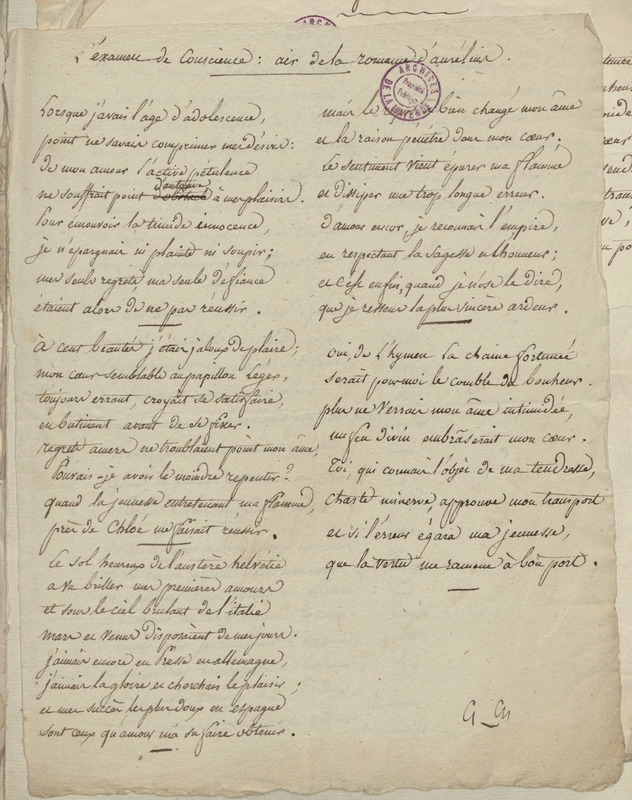 L'examen de Conscience : air de la romance d'aurélius.
Lorsque j'avais l'age d'adolescence,
point ne savais comprimer mes désirs :
de mon amour l'active pétulence
d'entrave
ne souffrait point à mes plaisirs.
Pour émouvoir la timide innocence,
je n'épargnais ni plainte ni soupirs ;
mes seuls regrets ma seule défiance
étaient alors de ne pas réussir.
À cent beautés j'étais jaloux de plaire ;
mon cœur semblable au papillon léger,
toujours errant, croyait se satisfaire,
en butinant avant de se fixer.
regrets amers ne troublaient point mon âme,
Pouvais-je avoir le moindre repentir ?
quand la jeunesse entretenant ma flamme,
près de Chloé me faisait reussir.
Le sol heureux de l'austère helvétie
a vu briller mes premières amours
et sous le ciel brulant de l'italie
mars et venus disposaient de mes jours.
j'aimais encore en Prusse en allemagne,
j'aimais la gloire et cherchais le plaisir ;
et mes succès les plus doux en espagne
sont ceux qu'amour m'a su faire obtenir.
mais le bien changé mon âme
et la raison pénètre dans mon cœur.
Le sentiment vient épurer ma flamme
et dissiper une trop longue erreur.
d'amour encor, je reconnais l'empire,
en respectant la sagesse et l'honneur ;
et c'est enfin, quand je n'ose le dire,
que je ressens la plus sincère ardeur.
oui de l'hymen la chaine fortunée
serait pour moi le comble du bonheur.
plus ne verrais mon âme intimidée,
un feu divin embrâserait mon cœur.
Toi, qui connais l'objet de ma tendresse,
chaste minerve, approuve mon transport
et si l'erreur égara ma jeunesse,
que la vertu me ramene à bon port.